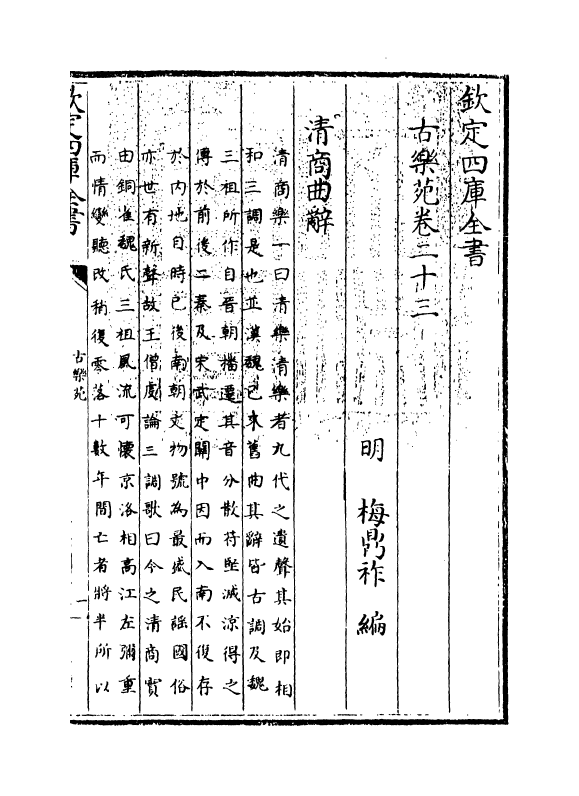 欽定四庫全書
古樂苑卷二十三
明　梅鼎祚　編
清商曲辭
清商樂一曰清樂清樂者九代之遺聲其始即相
和三調是也並漢魏已來舊曲其辭皆古調及魏
三祖所作自晉朝播遷其音分散苻堅滅涼得之
傳於前後二秦及宋武定關中因而入南不復存
於内地自時已後南朝文物號為最盛民謡國俗
亦世有新聲故王僧虔論三調歌曰今之清商實
由銅雀魏氏三祖風流可懷京洛相高江左彌重
而情變聽改稍復零落十數年間亡者將半所以
欽定四庫全書
古樂苑
一